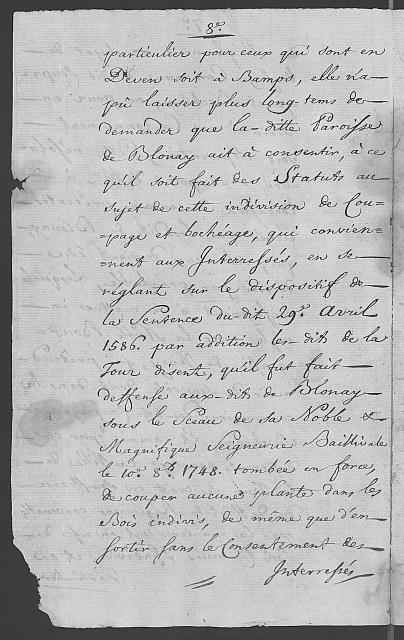 8e.
particulier pour ceux qui sont en
Deven soit à Bamps, elle n'a
pû laisser plus long-tems de
demander que la-ditte Paroisse
de Blonay ait à consentir, à ce
qu'il soit fait des Statuts au
sujet de cette indivision de Cou=
=page et bochéage, qui convien=
=nent aux Interressés, en se
réglant sur le dispositif de
la Sentence du-dit 29e. Avril
1586. par addition les-dits de la
Tour disent, qu'il fut fait
deffense aux-dits de Blonay
sous le Sceau de sa Noble &
Magnifique Seigneurie Baillivale
le 10e. 8b. 1748. tombée en force,
de couper aucune plante dans les
Bois indivis, de même que d'en
sortir sans le Consentement des
Interressés